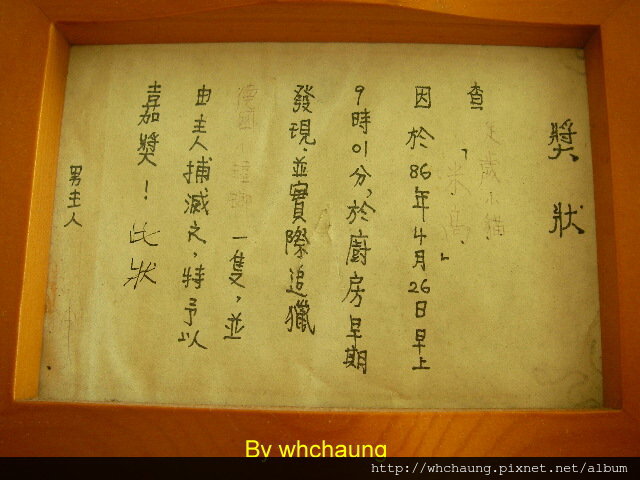 獎狀
查 歲小貓
「米 」
因於86年4月26日早上
9時01分,於廚房早期
發現.並實際追獵
德國蟑螂一隻,並
由主人捕滅之,特予以
嘉獎!此狀
男主人
By whchaung
http://whchaung.pixnet.net/album